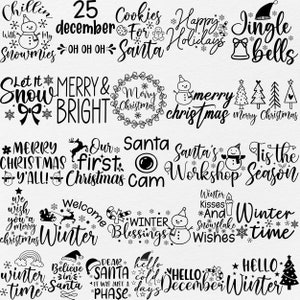 Chillin'
With My
Snowmies
25
december
OH OH OH
Cookies
For
Santa
Happy
Holidays
Jingle
bells
Let it
Snow
MERRY &
BRIGHT
Merry
Christmas
merry
christmas
Merry Christmas
MERRY
CHRISTMAS
Y'ALL!
Our
first
Christmas
Santa
Cam
Santa's
Workshop
'Tis the
Season
We
wish
you a
merry
christmas
Welcome
Winter
WINTER
Blessings
Winter
Kisses
And
Snowflake
Wishes
Winter
time
winter
time
Believe
in
Santa
DEAR
SANTA
IT WAS JUST A
PHASE
HELLO
December
HELLO
Winter